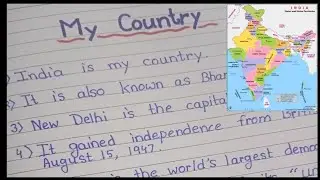 My Country
1) India is my country.
2) It is also known as Bhar
3) New Delhi is the capita
4) It gained independence from Briti
August 15, 1947.
is the world's largest demo
INDIA